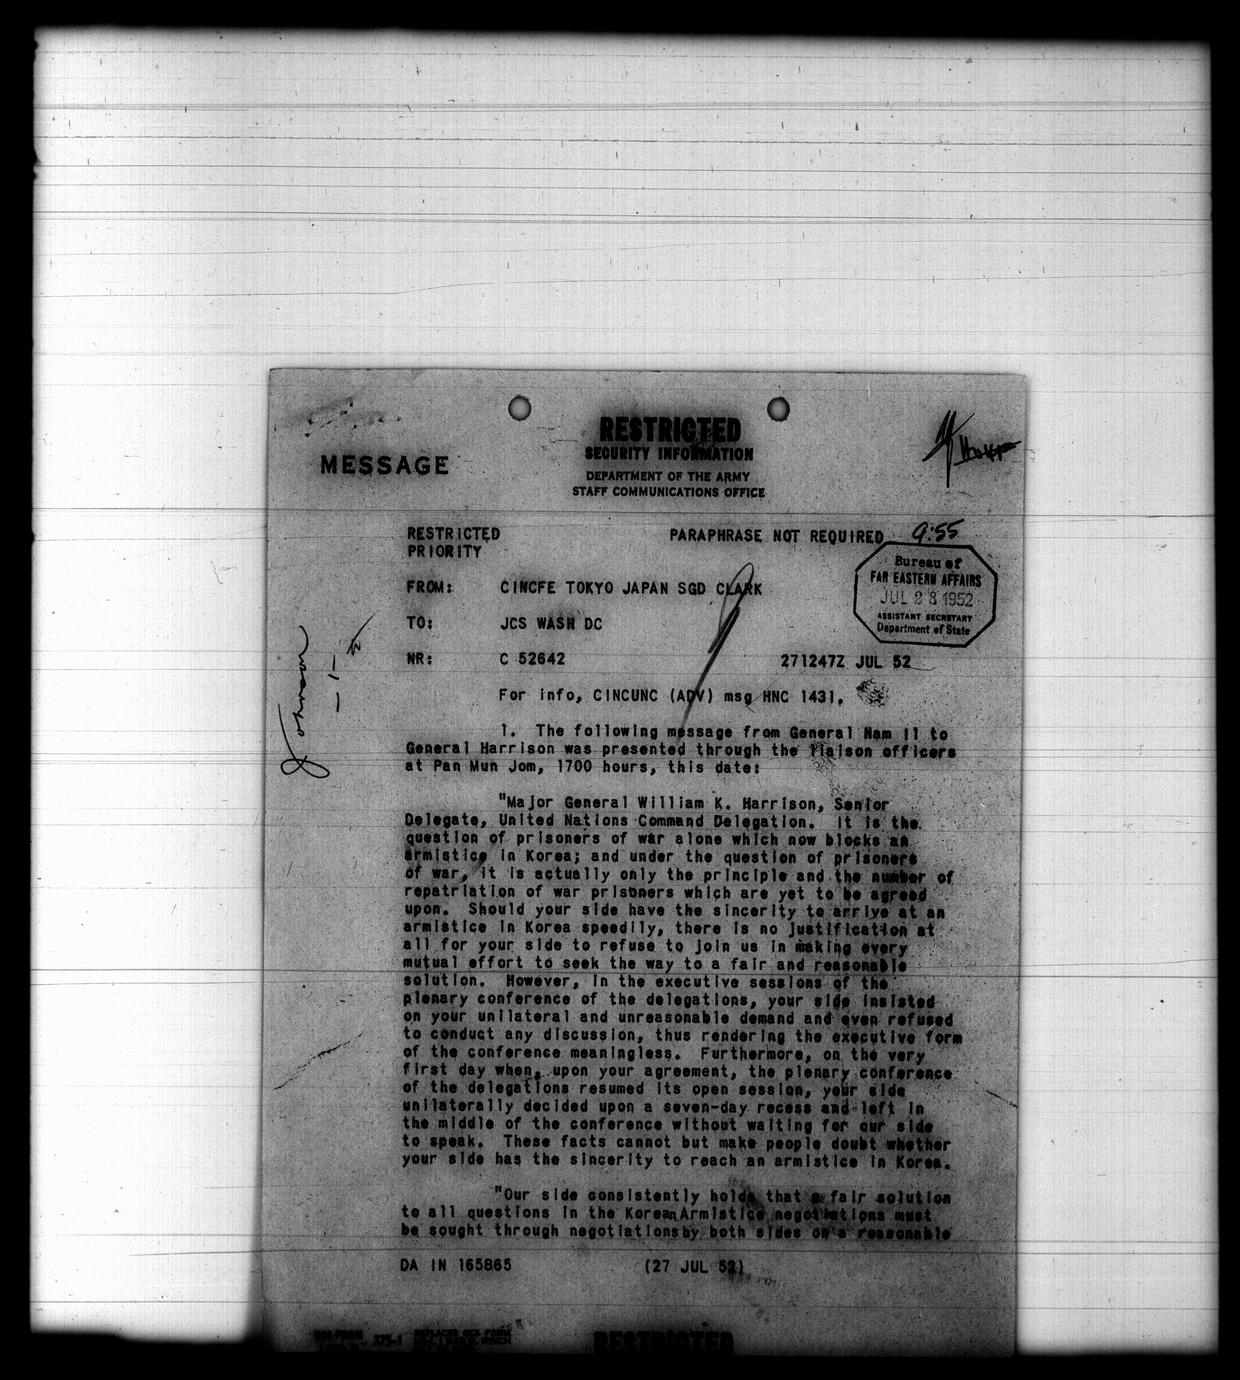 RESTRICTED
SECURITY INFORMATION
MESSAGE
DEPARTMENT OF THE ARMY
STAFF COMMUNICATIONS OFFICE
RESTRICTED PARAPHRASE NOT REQUIRED 9:55
PRIORITY
Bureau of
FAR EASTERN AFFAIRS
JUL 28 1952
ASSISTANT SECRETARY
Department of State
FROM: CINCFE TOKYO JAPAN SGD CLARK
TO: JCS WASH DC
NR: C 52642 271247Z JUL 52
Johnson
For info, CINCUNC (ADV) msg HNC 1431.
1. The following message from General Nam Il to
General Harrison was presented through the liaison officers
at Pan Mun Jom, 1700 hours, this date:
"Major General William K. Harrison, Senior
Delegate, United Nations Command Delegation. It is the
question of prisoners of war alone which now blocks an
armistice in Korea; and under the question of prisoners
of war, it is actually only the principle and the number of
repatriation of war prisoners which are yet to be agreed
upon. Should your side have the sincerity to arrive at an
armistice in Korea speedily, there is no justification at
all for your side to refuse to join us in making every
mutual effort to seek the way to a fair and reasonable
solution. However, in the executive sessions of the
plenary conference of the delegations, your side insisted
on your unilateral and unreasonable demand and even refused
to conduct any discussion, thus rendering the executive form
of the conference meaningless. Furthermore, on the very
first day when, upon your agreement, the plenary conference
of the delegations resumed its open session, your side
unilaterally decided upon a seven-day recess and left in
the middle of the conference without waiting for our side
to speak. These facts cannot but make people doubt whether
your side has the sincerity to reach an armistice in Korea.
"Our side consistently holds that a fair solution
to all questions in the Korean Armistice negotiations must
be sought through negotiations by both sides on a reasonable
DA IN 165865 (27 JUL 52)
375-1
RESTRICTED